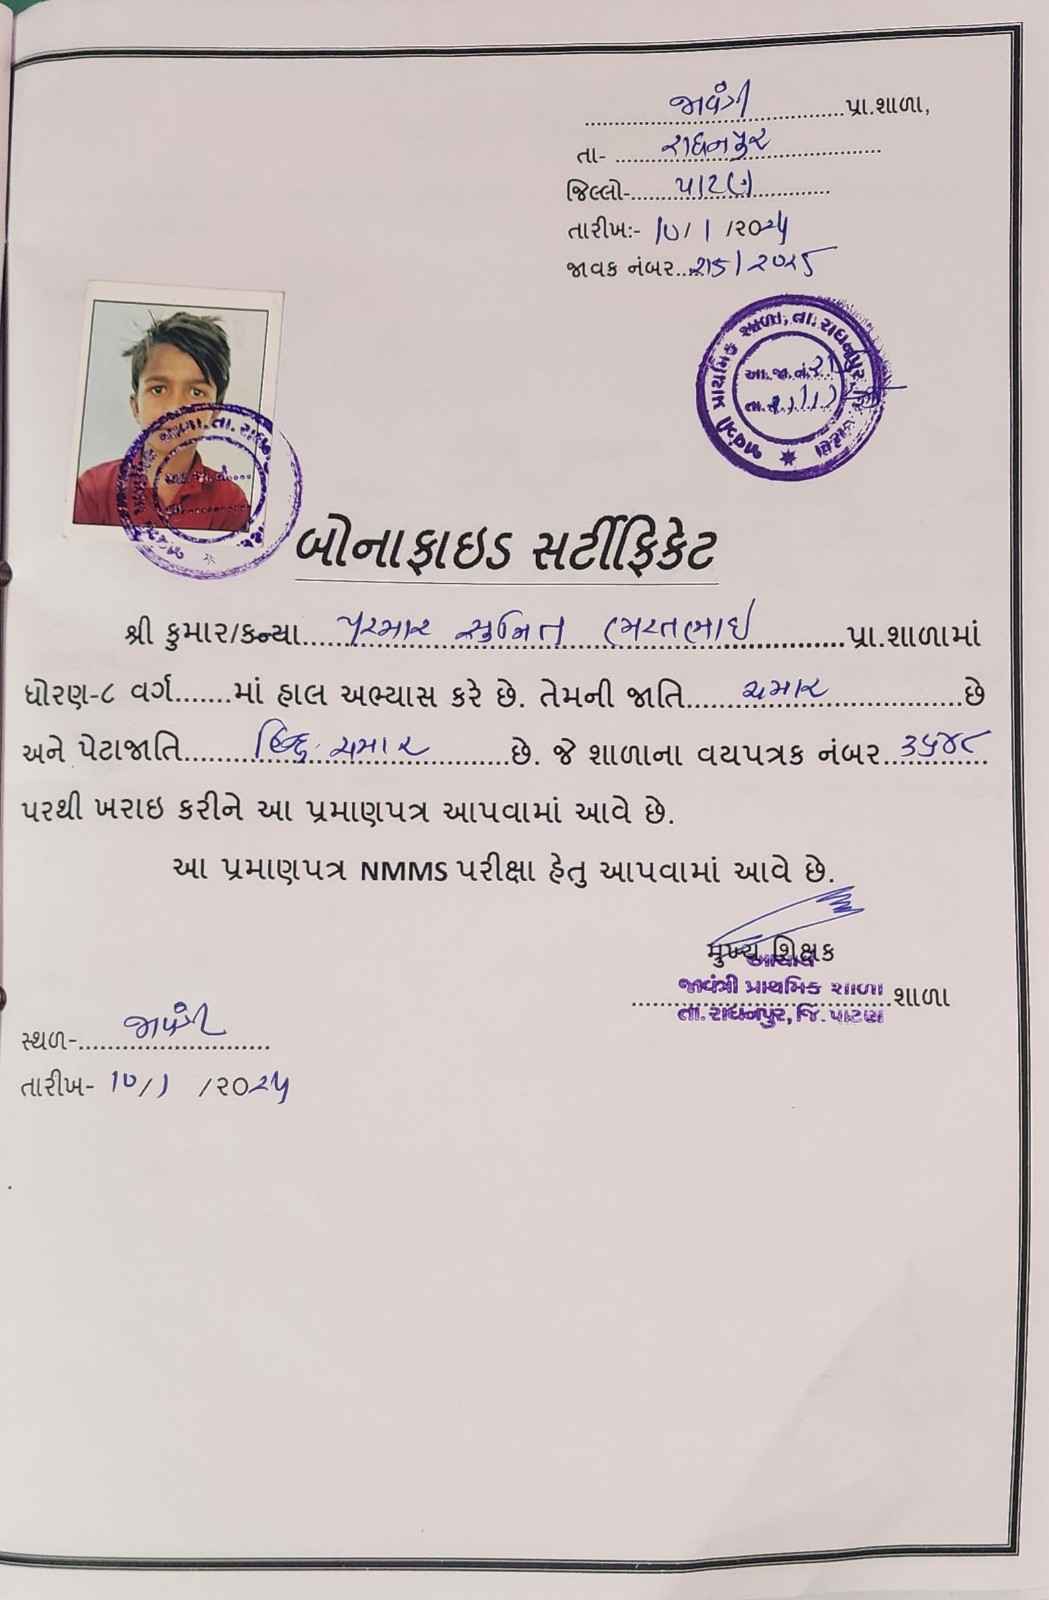 જાવંત્રી પ્રા.શાળા,
તા- રાધનપુર
જિલ્લો- પાટણ
તારીખ:- ૧૦/ ૧ /૨૦૨૫
જાવક નંબર... /૨૦૨૫
પ્રાથમિક શાળા, તા. રાધનપુર,
આ.જા.નં.
તા.
બોનાફાઇડ સર્ટીફિકેટ
શ્રી કુમાર/કન્યા....પરમાર સુમિત ભરતભાઇ............પ્રા.શાળામાં
ધોરણ-૮ વર્ગ.......માં હાલ અભ્યાસ કરે છે. તેમની જાતિ......ચમાર..............છે
અને પેટાજાતિ........હિન્દુ ચમાર.........છે. જે શાળાના વયપત્રક નંબર..૩૫૪૮
પરથી ખરાઇ કરીને આ પ્રમાણપત્ર આપવામાં આવે છે.
આ પ્રમાણપત્ર NMMS પરીક્ષા હેતુ આપવામાં આવે છે.
મુખ્ય શિક્ષક
આચાર્ય
જાવંત્રી પ્રાથમિક શાળા
..............................શાળા
તા. રાધનપુર, જિ. પાટણ
સ્થળ- જાવંત્રી
તારીખ- ૧૦/૧ /૨૦૨૫